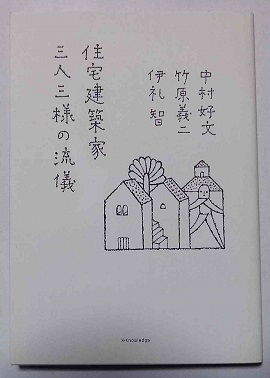 住宅建築家
三人三様の流儀
中村好文
竹原義二
伊礼 智
X-Knowledge